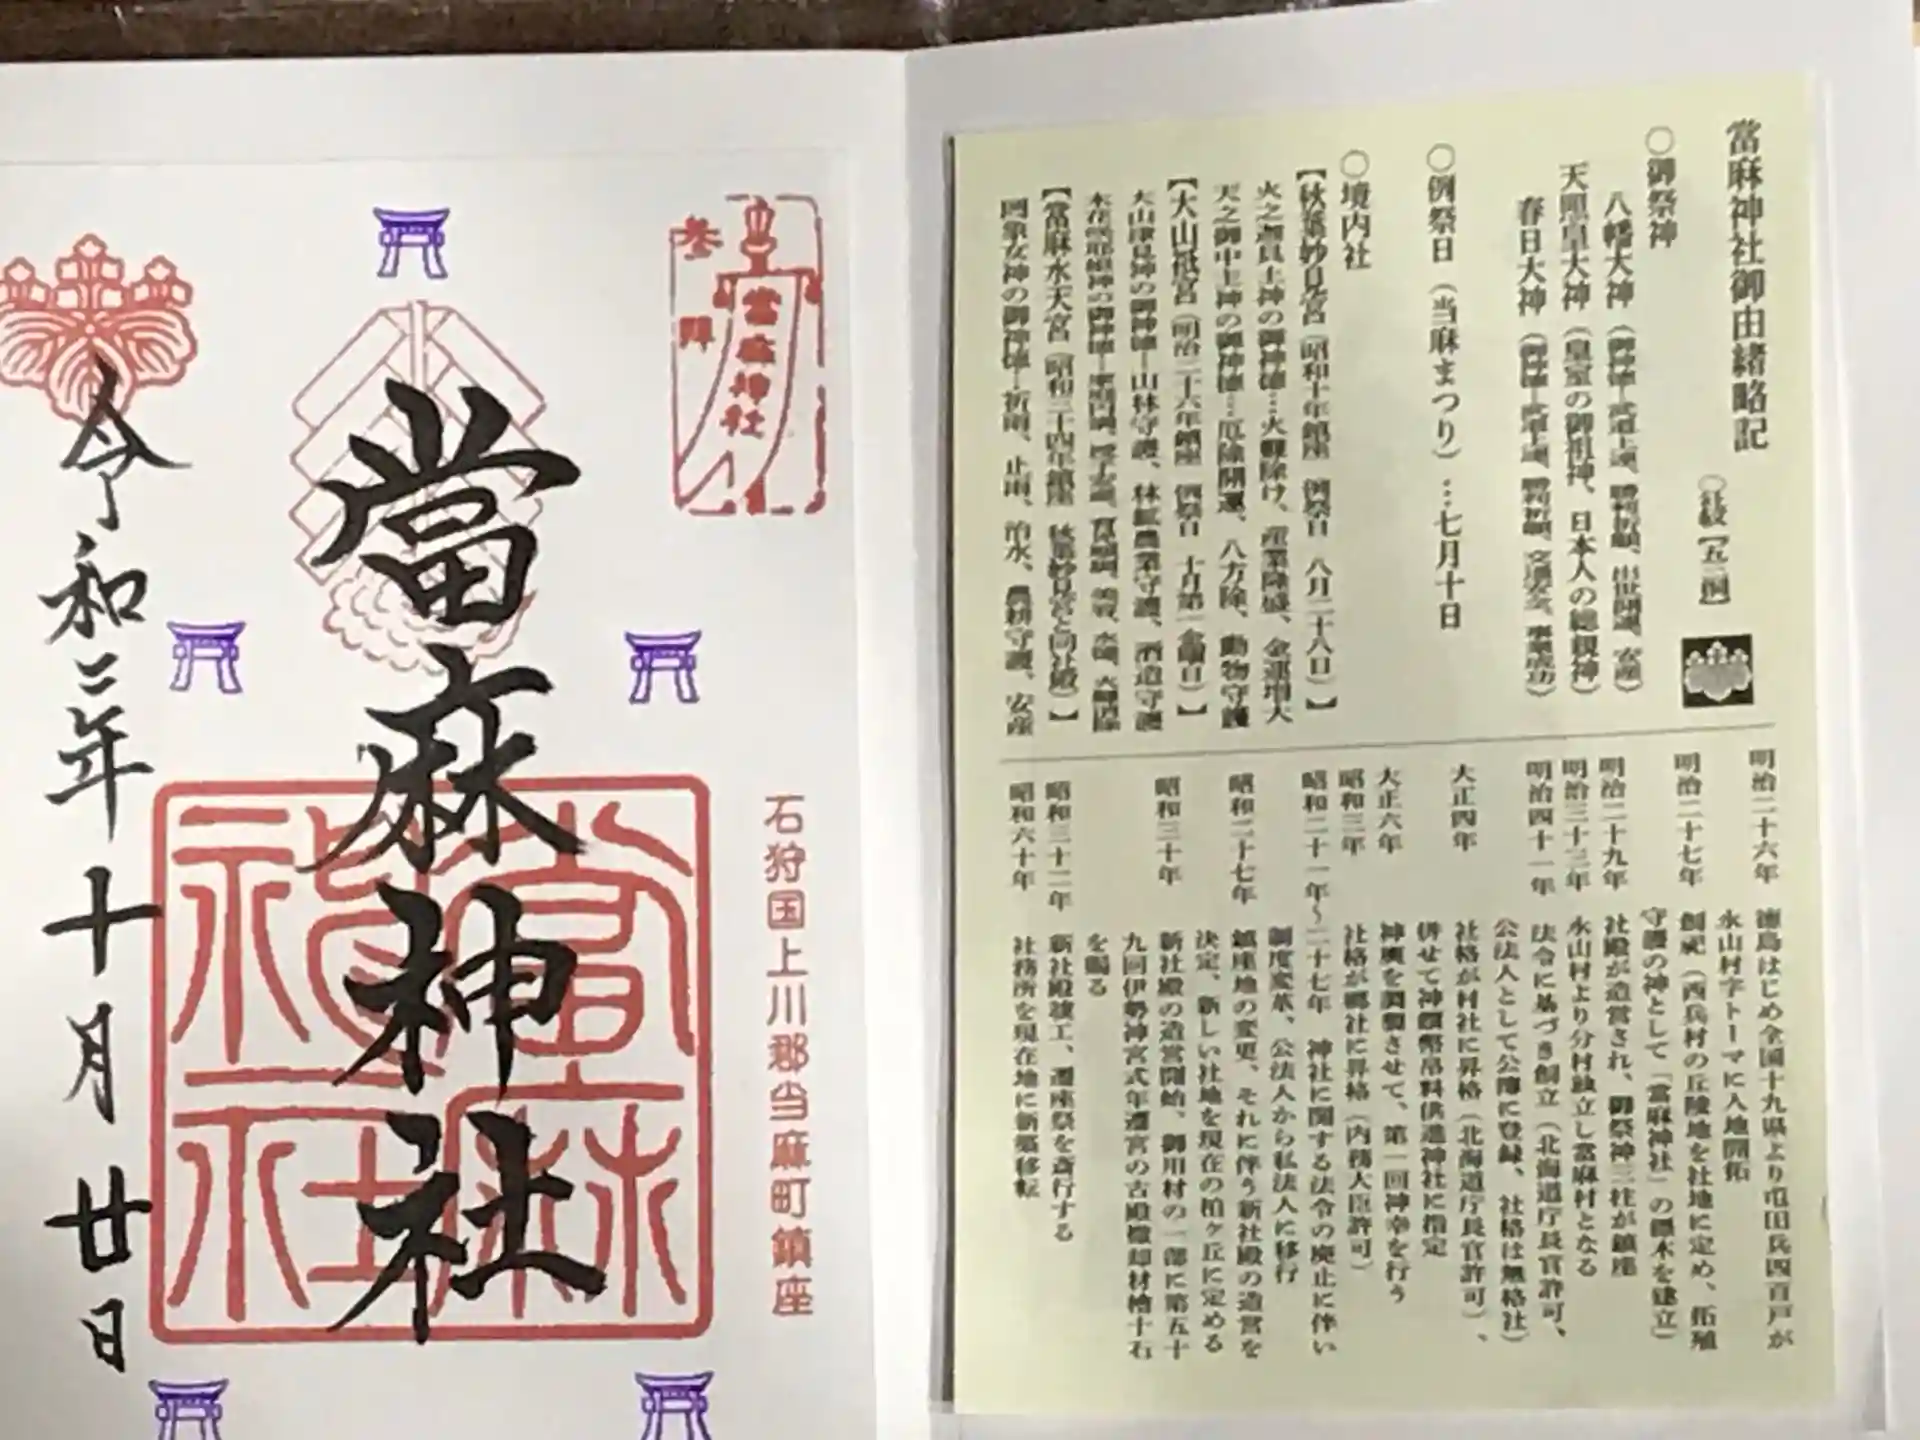 當麻神社御由緒略記
○社紋【五三桐】
○御祭神
八幡大神（御神徳―武運上運、勝利祈願、出世開運、安産）
天照皇大神（皇室の御祖神、日本人の総親神）
春日大神
○例祭日（当麻まつり）…七月十日
○境内社
【秋葉妙見宮（昭和十年鎮座 例祭日 八月二十八日）】
火之迦具土神の御神徳…火難除け、産業隆盛、金運増大
天之御中主神の御神徳…厄除開運、八方除、動物守護
【大山祇宮（明治二十六年鎮座 例祭日 十月第一金曜日）】
大山津見神の御神徳―山林守護、林鉱農業守護、酒造守護
【當麻水天宮（昭和三十四年鎮座 秋葉妙見宮と同社殿）】
罔象女神の御神徳―祈雨、止雨、治水、農耕守護、安産
明治二十六年 徳島はじめ全国十九県より屯田兵四百戸が
永山村字トーマに入地開拓
明治二十七年 創祀（西兵村の丘陵地を社地に定め、拓殖
守護の神として「當麻神社」の標木を建立）
明治二十九年 社殿が造営され、御祭神三柱が鎮座
明治三十三年 永山村より分村独立し當麻村となる
明治四十一年 法令に基づき創立（北海道庁長官許可、
公法人として公簿に登録、社格は無格社）
大正四年 社格が村社に昇格（北海道庁長官許可）、
併せて神饌幣帛料供進神社に指定
大正六年 神輿を調製させて、第一回神幸を行う
昭和三年 社格が郷社に昇格（内務大臣許可）
昭和二十一年～二十七年 神社に関する法令の廃止に伴い
制度変革、公法人から私法人に移行
昭和二十七年 鎮座地の変更、それに伴う新社殿の造営を
決定、新しい社地を現在の柏ヶ丘に定める
昭和三十年 新社殿の造営開始、御用材の一部に第五十
九回伊勢神宮式年遷宮の古殿撤却材檜十石
を賜る
昭和三十二年 新社殿竣工、遷座祭を斎行する
昭和六十年 社務所を現在地に新築移転
参拝
當麻神社
石狩国上川郡当麻町鎮座
當麻神社
當麻神社
令和二年十月廿日